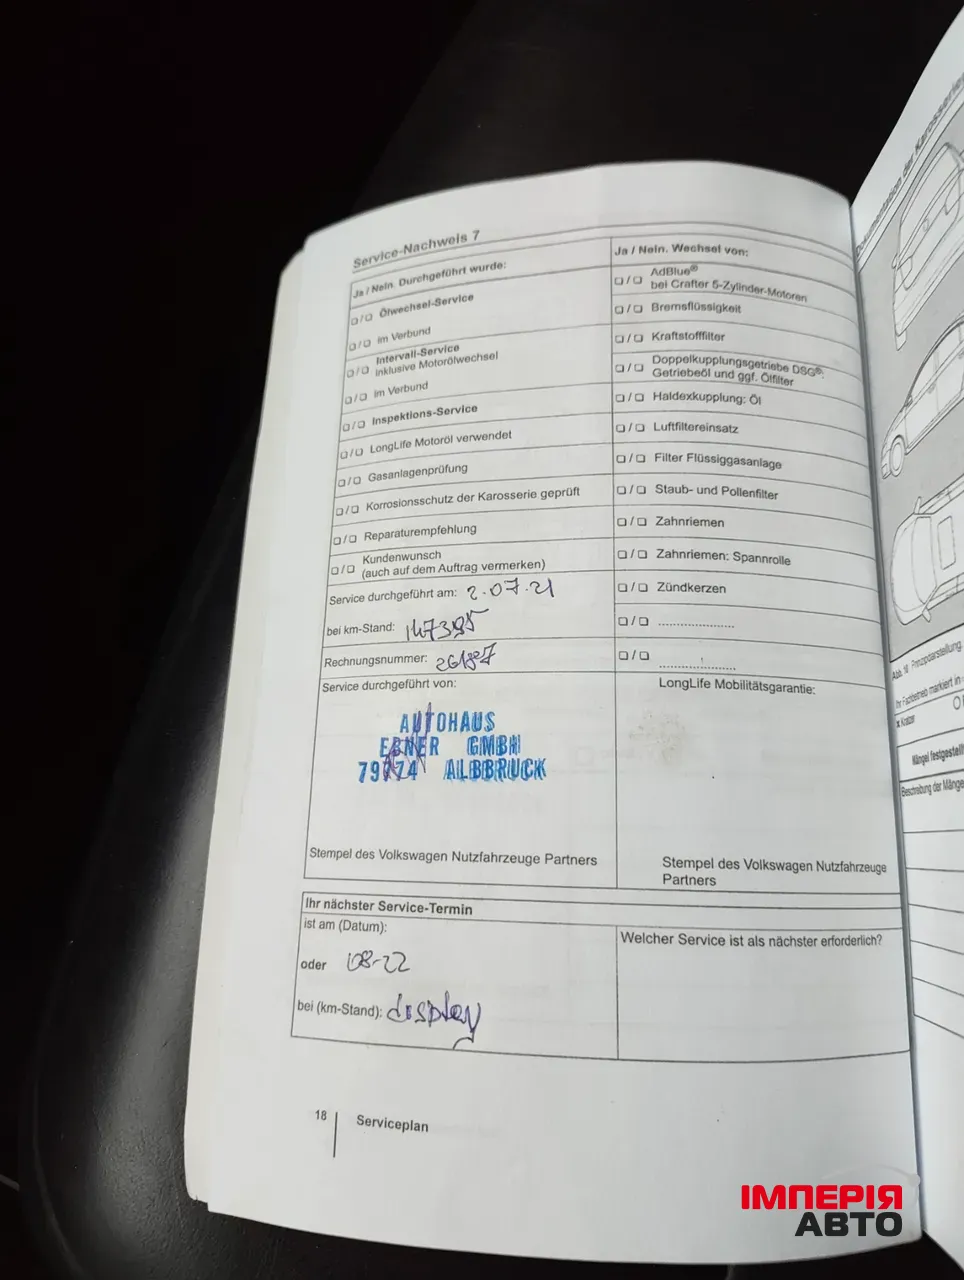 Service-Nachweis 7
Ja / Nein. Durchgeführt wurde:
❏ / ❏ Ölwechsel-Service
❏ / ❏ im Verbund
❏ / ❏ Intervall-Service
inklusive Motorölwechsel
❏ / ❏ im Verbund
❏ / ❏ Inspektions-Service
❏ / ❏ LongLife Motoröl verwendet
❏ / ❏ Gasanlagenprüfung
❏ / ❏ Korrosionsschutz der Karosserie geprüft
❏ / ❏ Reparaturempfehlung
❏ / ❏ Kundenwunsch
(auch auf dem Auftrag vermerken)
Service durchgeführt am: 2.07.21
bei km-Stand: 147395
Rechnungsnummer: 261827
Service durchgeführt von:
AUTOHAUS
EBNER GMBH
79774 ALBBRUCK
Stempel des Volkswagen Nutzfahrzeuge Partners
Ja / Nein. Wechsel von:
❏ / ❏ AdBlue®
bei Crafter 5-Zylinder-Motoren
❏ / ❏ Bremsflüssigkeit
❏ / ❏ Kraftstofffilter
❏ / ❏ Doppelkupplungsgetriebe DSG®:
Getriebeöl und ggf. Ölfilter
❏ / ❏ Haldexkupplung: Öl
❏ / ❏ Luftfiltereinsatz
❏ / ❏ Filter Flüssiggasanlage
❏ / ❏ Staub- und Pollenfilter
❏ / ❏ Zahnriemen
❏ / ❏ Zahnriemen: Spannrolle
❏ / ❏ Zündkerzen
❏ / ❏ ....................
❏ / ❏ ....................
LongLife Mobilitätsgarantie:
Stempel des Volkswagen Nutzfahrzeuge
Partners
Ihr nächster Service-Termin
ist am (Datum):
oder 08-22
bei (km-Stand): display
Welcher Service ist als nächster erforderlich?
18 Serviceplan
Dokumentation der Karosserie
Abb. 18 Prinzipdarstellung
Ihr Fachbetrieb markiert in
x Kratzer
Mängel festgestellt
Beschreibung der Mängel
ІМПЕРІЯ
АВТО